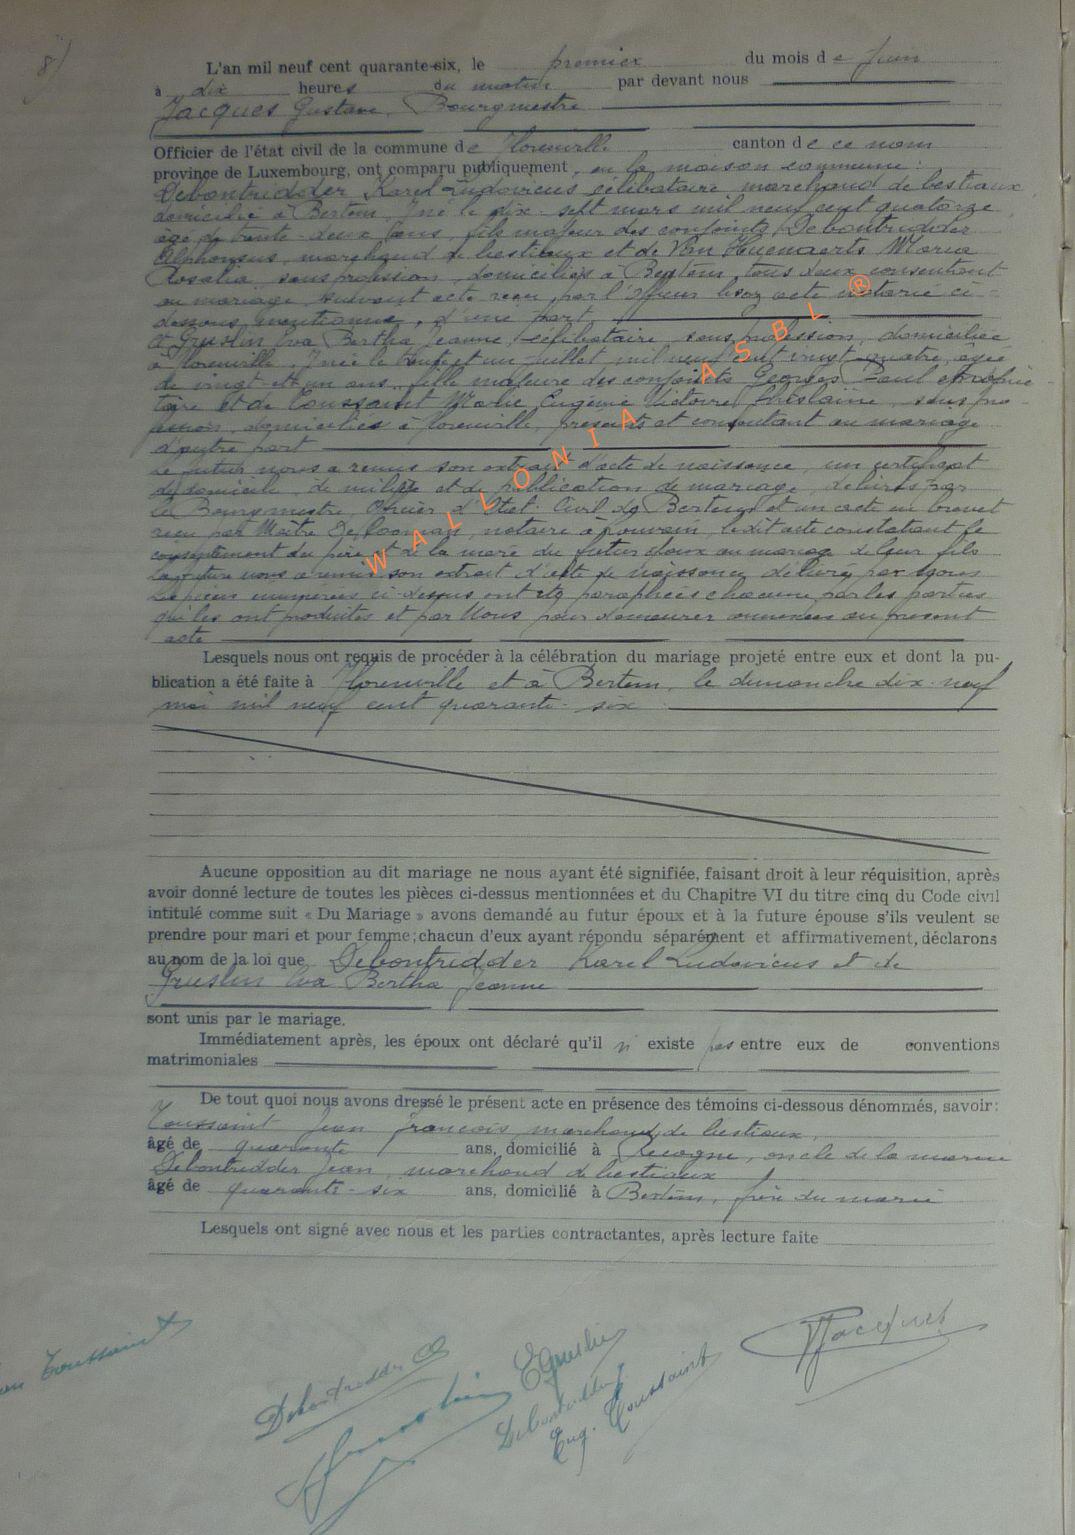 8)
L'an mil neuf cent quarante-six, le premier du mois de Juin
à dix heures du matin par devant nous
Jacques Gustave, Bourgmestre
Officier de l'état civil de la commune de Florenville canton de ce nom
province de Luxembourg, ont comparu publiquement, en la maison commune :
Debontridder Karel Ludovicus célibataire marchand de bestiaux
domicilié à Bertem, y né le dix-sept mars mil neuf cent quatorze
âgé de trente-deux ans, fils majeur des conjoints Debontridder
Alphonsus, marchand de bestiaux et de Van Maria
Rosalia, sans profession, domiciliés à Bertem, tous deux consentant
au mariage suivant acte reçu par l'acte notarié ci-
dessous mentionné, d'une part,
et Gruslin Eva Bertha Jeanne, célibataire, sans profession, domiciliée
à Florenville, y née le vingt et un juillet mil neuf cent vingt-quatre, âgée
de vingt et un ans, fille majeure des conjoints Georges Paul
et de Toussaint Marie Eugénie Victoire Ghislaine, sans pro-
fession, domiciliés à Florenville, présents et consentant au mariage
d'autre part
Le futur nous a remis son extrait d'acte de naissance, un certificat
de domicile, de milice et de publication de mariage, délivrés par
le Bourgmestre, Officier d'Etat-Civil de Bertem et un acte en brevet
reçu par Maître notaire à Louvain, ledit acte constatant le
consentement du père et de la mère du futur époux au mariage de leur fils
La future nous a remis son extrait d'acte de naissance délivré par nous
Les pièces énumérées ci-dessus ont été paraphées chacune par les parties
qui les ont produites et par Nous pour demeurer annexées au présent
acte
Lesquels nous ont requis de procéder à la célébration du mariage projeté entre eux et dont la pu-
blication a été faite à Florenville et à Bertem, le dimanche dix-neuf
mai mil neuf cent quarante-six
Aucune opposition au dit mariage ne nous ayant été signifiée, faisant droit à leur réquisition, après
avoir donné lecture de toutes les pièces ci-dessus mentionnées et du Chapitre VI du titre cinq du Code civil
intitulé comme suit « Du Mariage » avons demandé au futur époux et à la future épouse s'ils veulent se
prendre pour mari et pour femme; chacun d'eux ayant répondu séparément et affirmativement, déclarons
au nom de la loi que Debontridder Karel Ludovicus et de
Gruslin Eva Bertha Jeanne
sont unis par le mariage.
Immédiatement après, les époux ont déclaré qu'il n'existe pas entre eux de conventions
matrimoniales
De tout quoi nous avons dressé le présent acte en présence des témoins ci-dessous dénommés, savoir:
Toussaint Jean François, marchand de bestiaux,
âgé de quarante ans, domicilié à oncle de la mariée
Debontridder Jean, marchand de bestiaux
âgé de quarante-six ans, domicilié à Bertem, frère du marié
Lesquels ont signé avec nous et les parties contractantes, après lecture faite
Toussaint
Debontridder
EGruslin
GJacques
Gruslin
Debontridder J
Eug. Toussaint
WALLONIA ASBL ®